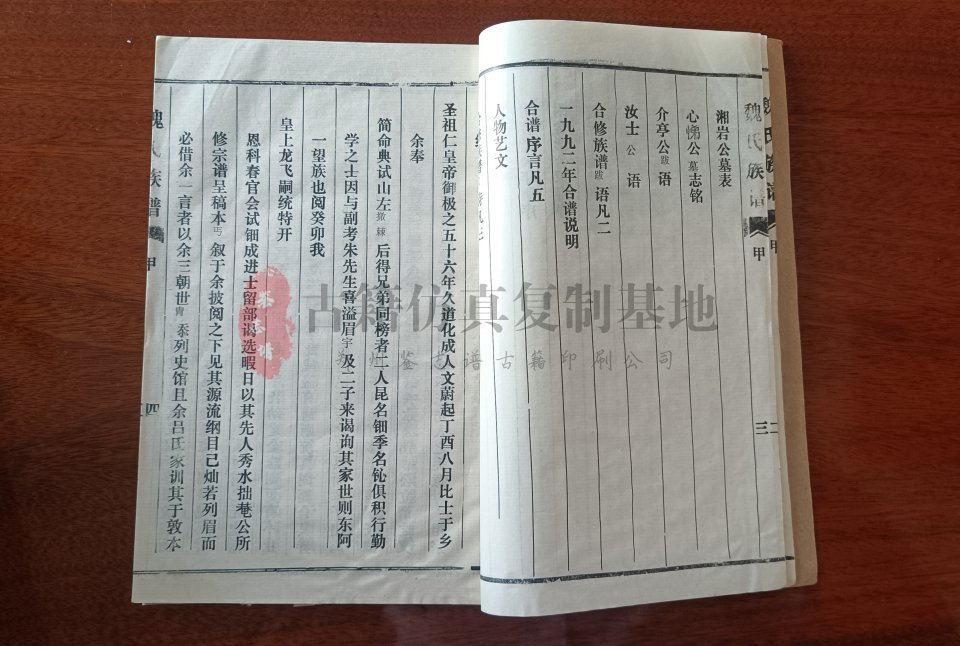 魏氏族谱
甲
二
魏氏族谱
甲
三
湘岩公墓表
心悌公墓志铭
介亭公跋语
汝士公语
合修族谱跋语凡二
一九九二年合谱说明
合谱序言凡五
人物艺文
圣祖仁皇帝御极之五十六年久道化成人文蔚起丁酉八月比士于乡
余奉
简命典试山左撤棘后得兄弟同榜者二人昆名钿季名铋俱积行勤
学之士因与副考朱先生喜溢眉宇及二子来谒询其家世则东阿
一望族也阅癸卯我
皇上龙飞嗣统特开
恩科春官会试钿成进士留部谒选暇日以其先人秀水拙菴公所
修宗谱呈稿本丐叙于余披阅之下见其源流纲目己灿若列眉而
必借余一言者以余三朝世胄忝列史馆且余吕氏家训其于敦本
族谱
甲
四
古籍仿真复制基地
谱古籍印刷公司